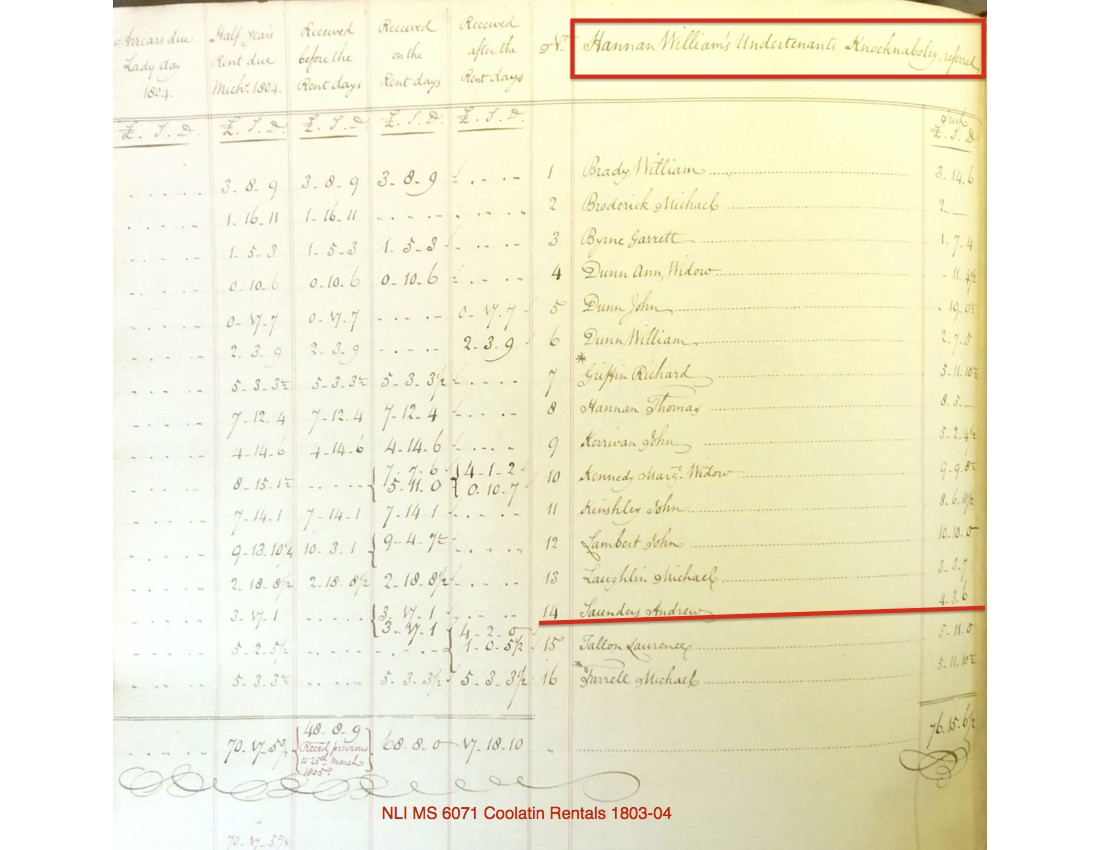 Arrears due Lady day 1804.
Half Year's Rent due Mich.s 1804.
Received before the Rent days
Received on the Rent days
Received after the Rent days
No. Hannan William's Undertenants Knocknaboley
£. S. D. £. S. D. £. S. D. £. S. D. £. S. D. £. S. D.
3-8-9 3-8-9 3-8-9 1 Brady William 3.14.6
1-16-11 1-16-11 2 Broderick Michael 2.
1-5-3 1-5-3 1-5-3 3 Byrne Garrett 1.7.4
0-10-6 0-10-6 0-10-6 4 Dunn Ann, Widow 11.4½
0-17-7 0-17-7 0-17-7 5 Dunn John 19.0
2-3-9 2-3-9 2.3.9 6 Dunn William 2.7.5
5-3-3½ 5-3-3½ 5-3-3½ 7 * Griffin Richard 5.11.10½
7-12-4 7-12-4 7-12-4 8 Hannan Thomas 8.5.
4-14-6 4-14-6 4-14-6 9 Kerrivan John 5.2.4½
8-15-1½ { 7-7-6 5-11-0 { 4-1-2 0-10-7 10 Kennedy Margt. Widow 9-9.8½
7-14-1 7-14-1 7-14-1 11 Kinshley John 8.6.11½
9-13-10¼ 10-3-1 { 9-4-7½ 12 Lambert John 10.10.0
2-18-8½ 2-18-8½ 2-18-8½ 13 Laughlin Michael 3.3.7
3-17-1 { 3-17-1 3-17-1 14 Saunders Andrew 4.3.6
5-2-5½ { 4-2-0 1-0-5½ 15 Tallon Laurence 5.11.0
5-3-3½ 5-3-3½ 5-3-3½ 16 * Farrell Michael 5.11.10½
70-17-5¾ 48-8-9 68-8-0 17-18-10 76.15.6½
Receid previous to 25th March 1805.
70-17-5¾
NLI MS 6071 Coolatin Rentals 1803-04